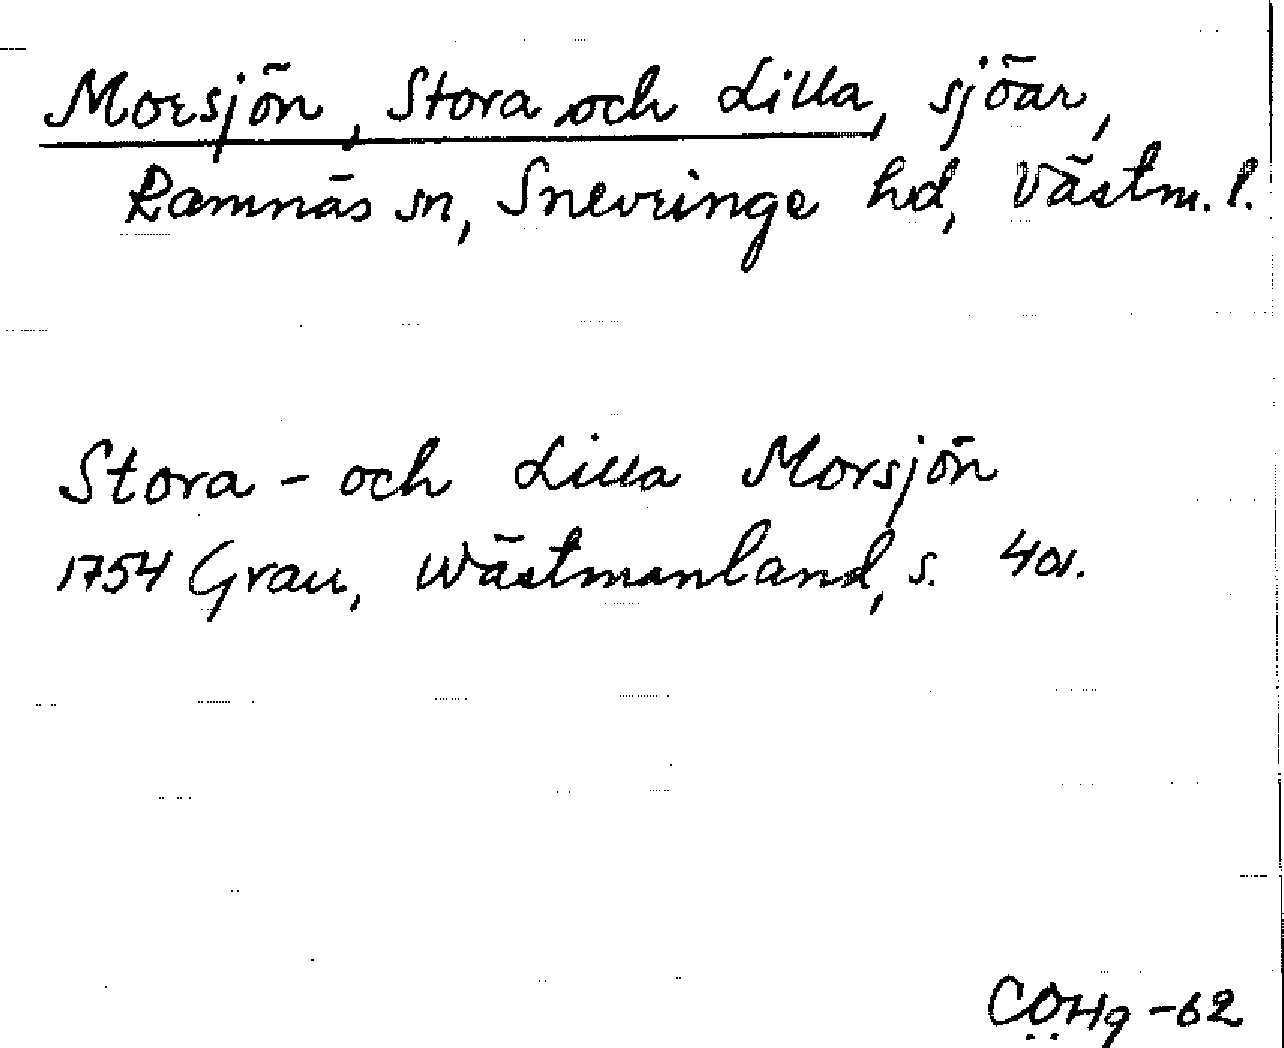 Morsjön, Stora och Lilla, sjöar,
Ramnäs sn, Snevringe hd, Västm. l.
Stora - och Lilla Morsjön
1754 Grau, Wästmanland, s. 401.
CÖHg -62